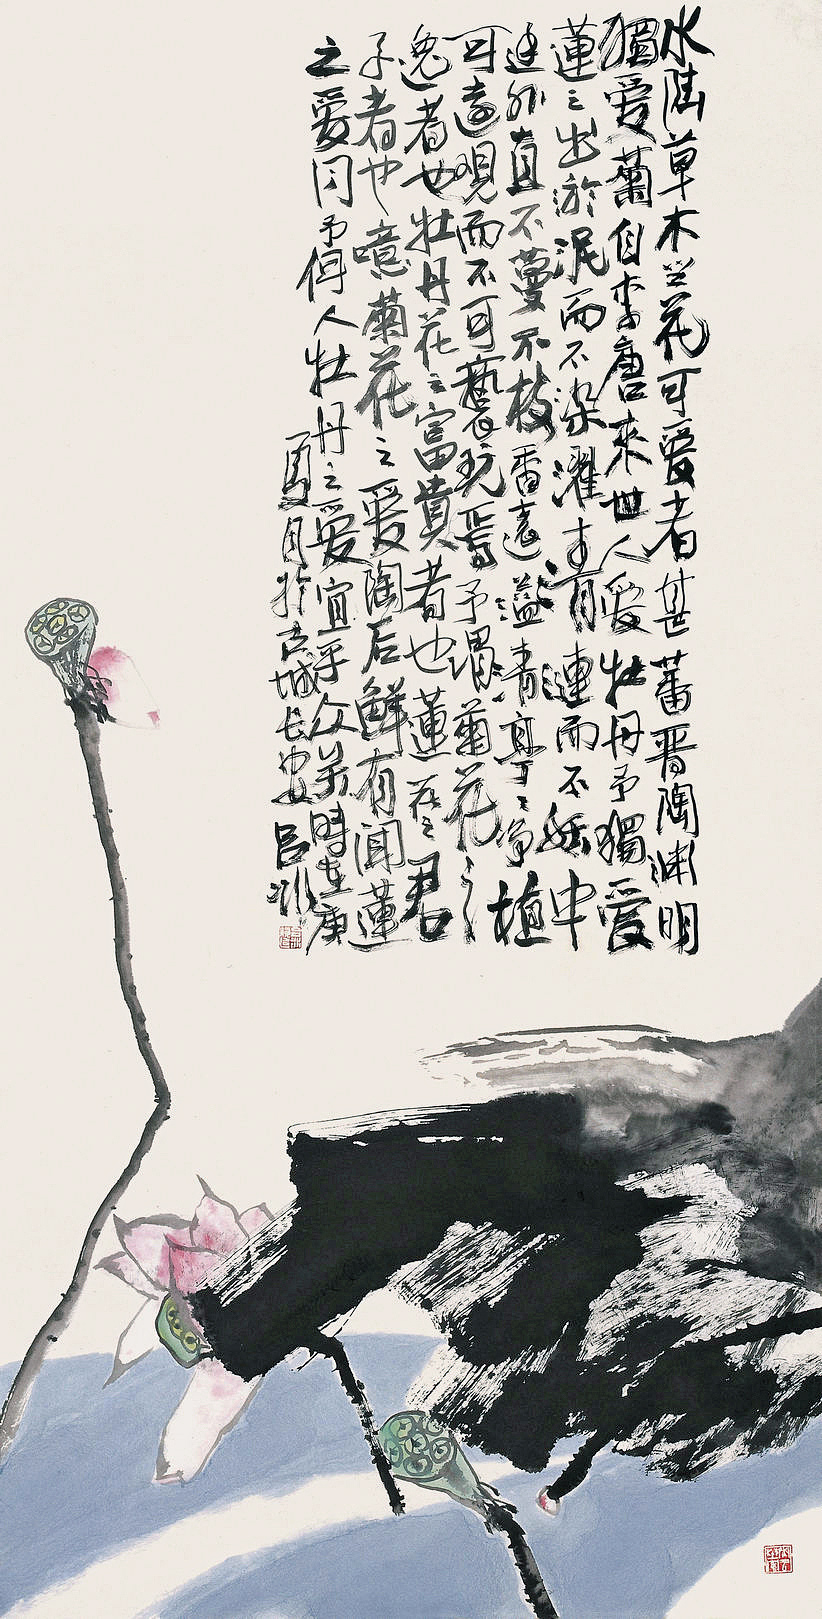 水陆草木之花可爱者甚蕃晋陶渊明
獨爱菊自李唐来世人爱牡丹予獨爱
蓮之出淤泥而不染濯青漣而不妖中
通外直不蔓不枝香遠溢清亭亭净植
可遠观而不可褻玩焉予謂菊花之
逸者也牡丹花之富貴者也蓮花之君
子者也噫菊花之爱陶后鲜有闻蓮
之爱同予何人牡丹之爱宜乎众矣時在庚
夏月於古城长安吕